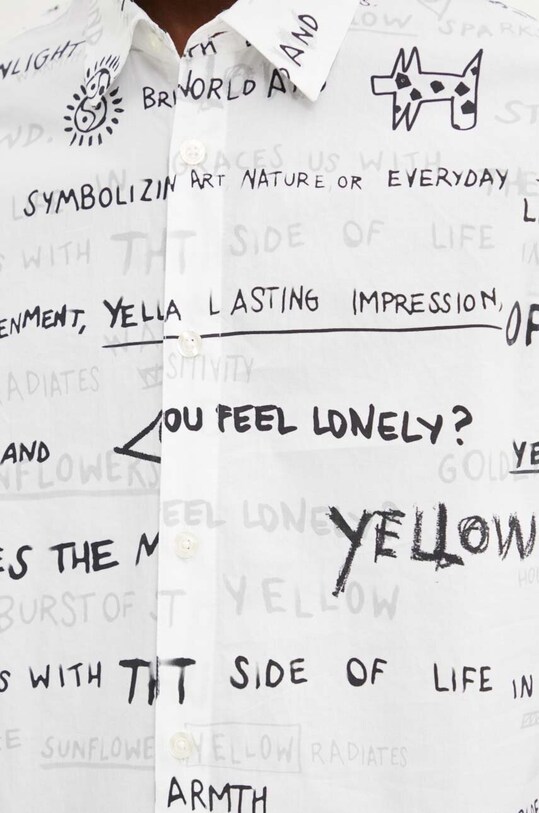 AND
LOW SPARK
NLIGHT
BRI WORLD A
ND.
ST
ACES US WITH
SYMBOLIZIN ART NATURE OR EVERYDAY
L
S WITH THT SIDE OF LIFE IN
ENMENT, YELLA LASTING IMPRESSION,
OF
RADIATES SITIVITY
OU FEEL LONELY?
AND
YE
NFLOWERS GOLDE
EEL LONELY?
YELLOW
ES THE M
BURST OF T YELLOW
S WITH THT SIDE OF LIFE IN
E SUNFLOWE YELLOW RADIATES
ARMTH